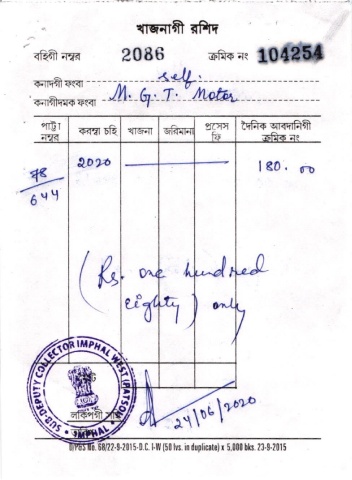 খাজনাগী রশিদ
বহিগী নম্বর 2086 ক্রমিক নং 104254
কনাদগী ফংবা self.
কনাগীদমক ফংবা M. G. T. Motor
পাট্টা নম্বর করম্বা চহি খাজনা জরিমানা প্রসেস ফি দৈনিক আবদানিগী ক্রমিক নং
78/644 2020 180.00
(Rs. one hundred
eighty) only
SUB-DEPUTY COLLECTOR IMPHAL WEST (PATSOI)
IMPHAL
24/06/2020
No. 68/22-9-2015-D.C. I-W (50 lvs. in duplicate) x 5,000 bks. 23-9-2015